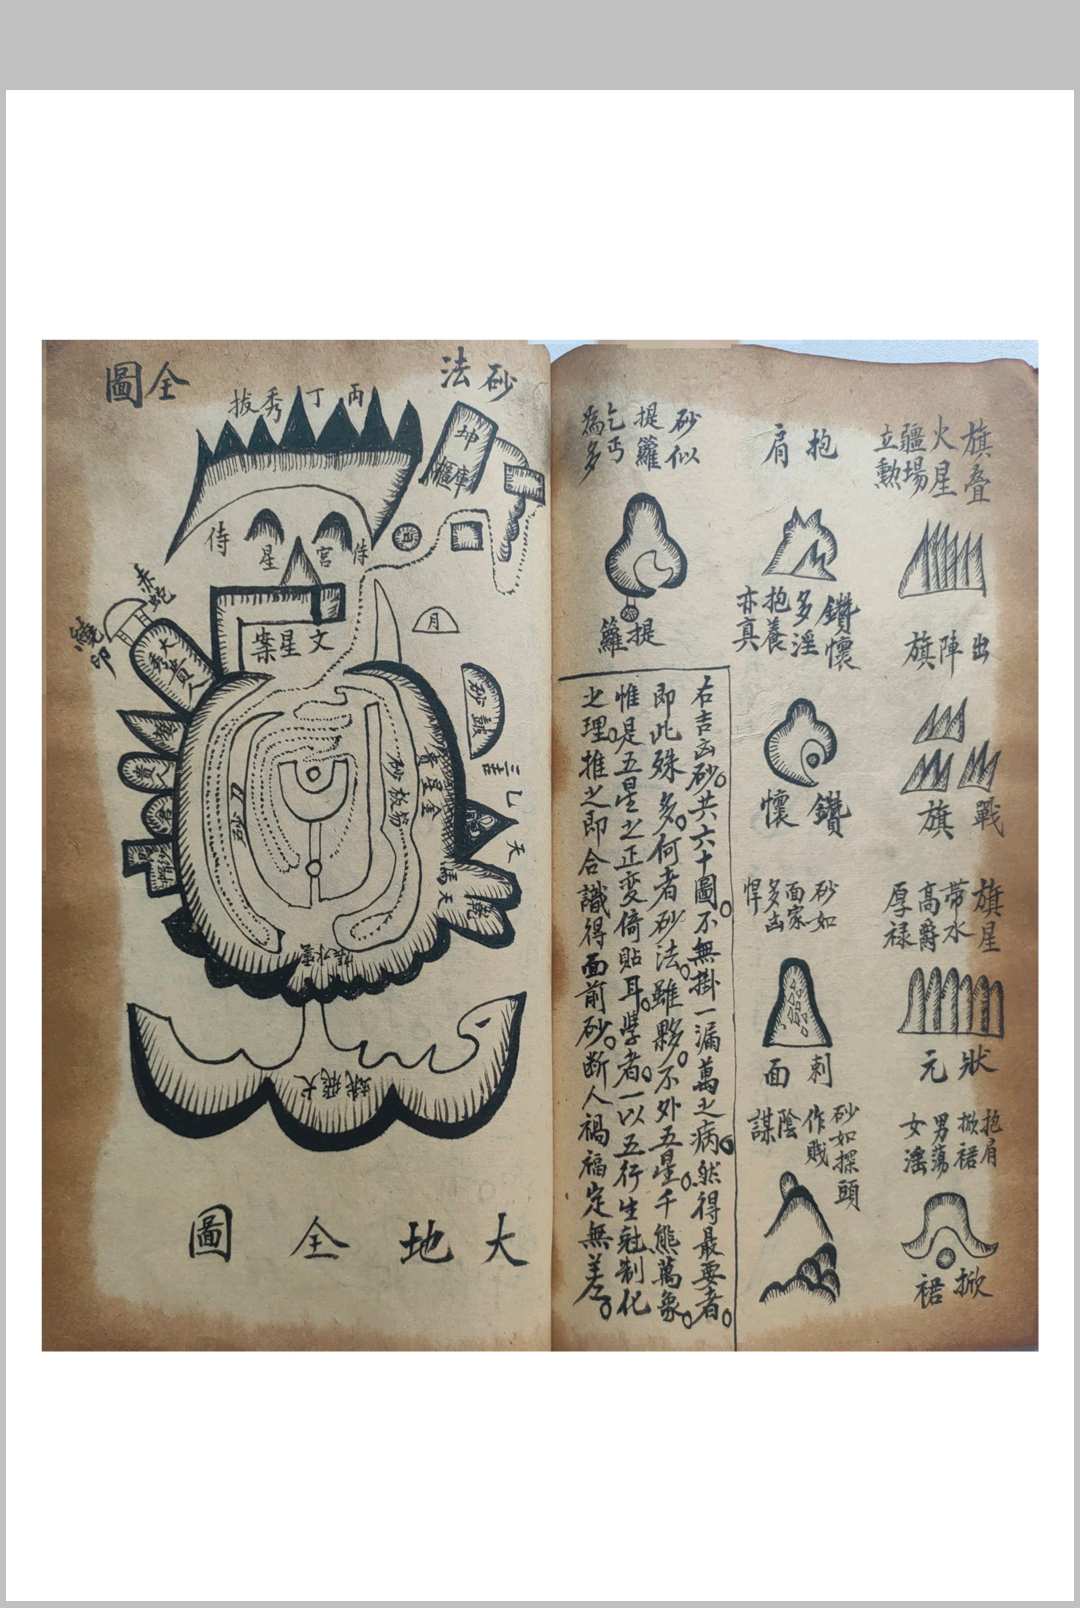 旗叠
火星
疆場
立勲
出陣旗
戰旗
旗星
帶水
高爵
厚禄
狀元
抱肩
掀裙
男蕩
女滛
掀裙
抱肩
鑽懷
多淫
抱養
亦真
鑽懷
砂如
面家
多凶
悍
刺面
砂如探頭
作贱
陰謀
砂似
提籮
乞丐
為多
提籮
右吉凶砂。共六十圖。不無掛一漏萬之病。然得最要者。
即此殊多。何者砂法。雖夥。不外五星。千熊萬象。
惟是五星之正変倚貼耳。學者。一以五行生尅制化
之理。推之即合識得面前砂。断人禍福定無差。
砂法
全圖
丙丁秀拔
坤
庫櫃
日
侍
星
宮
文星案
月
赤蛇
繞印
大貴人
砂鼓
金星
砂
乙
天
天馬
大地全圖